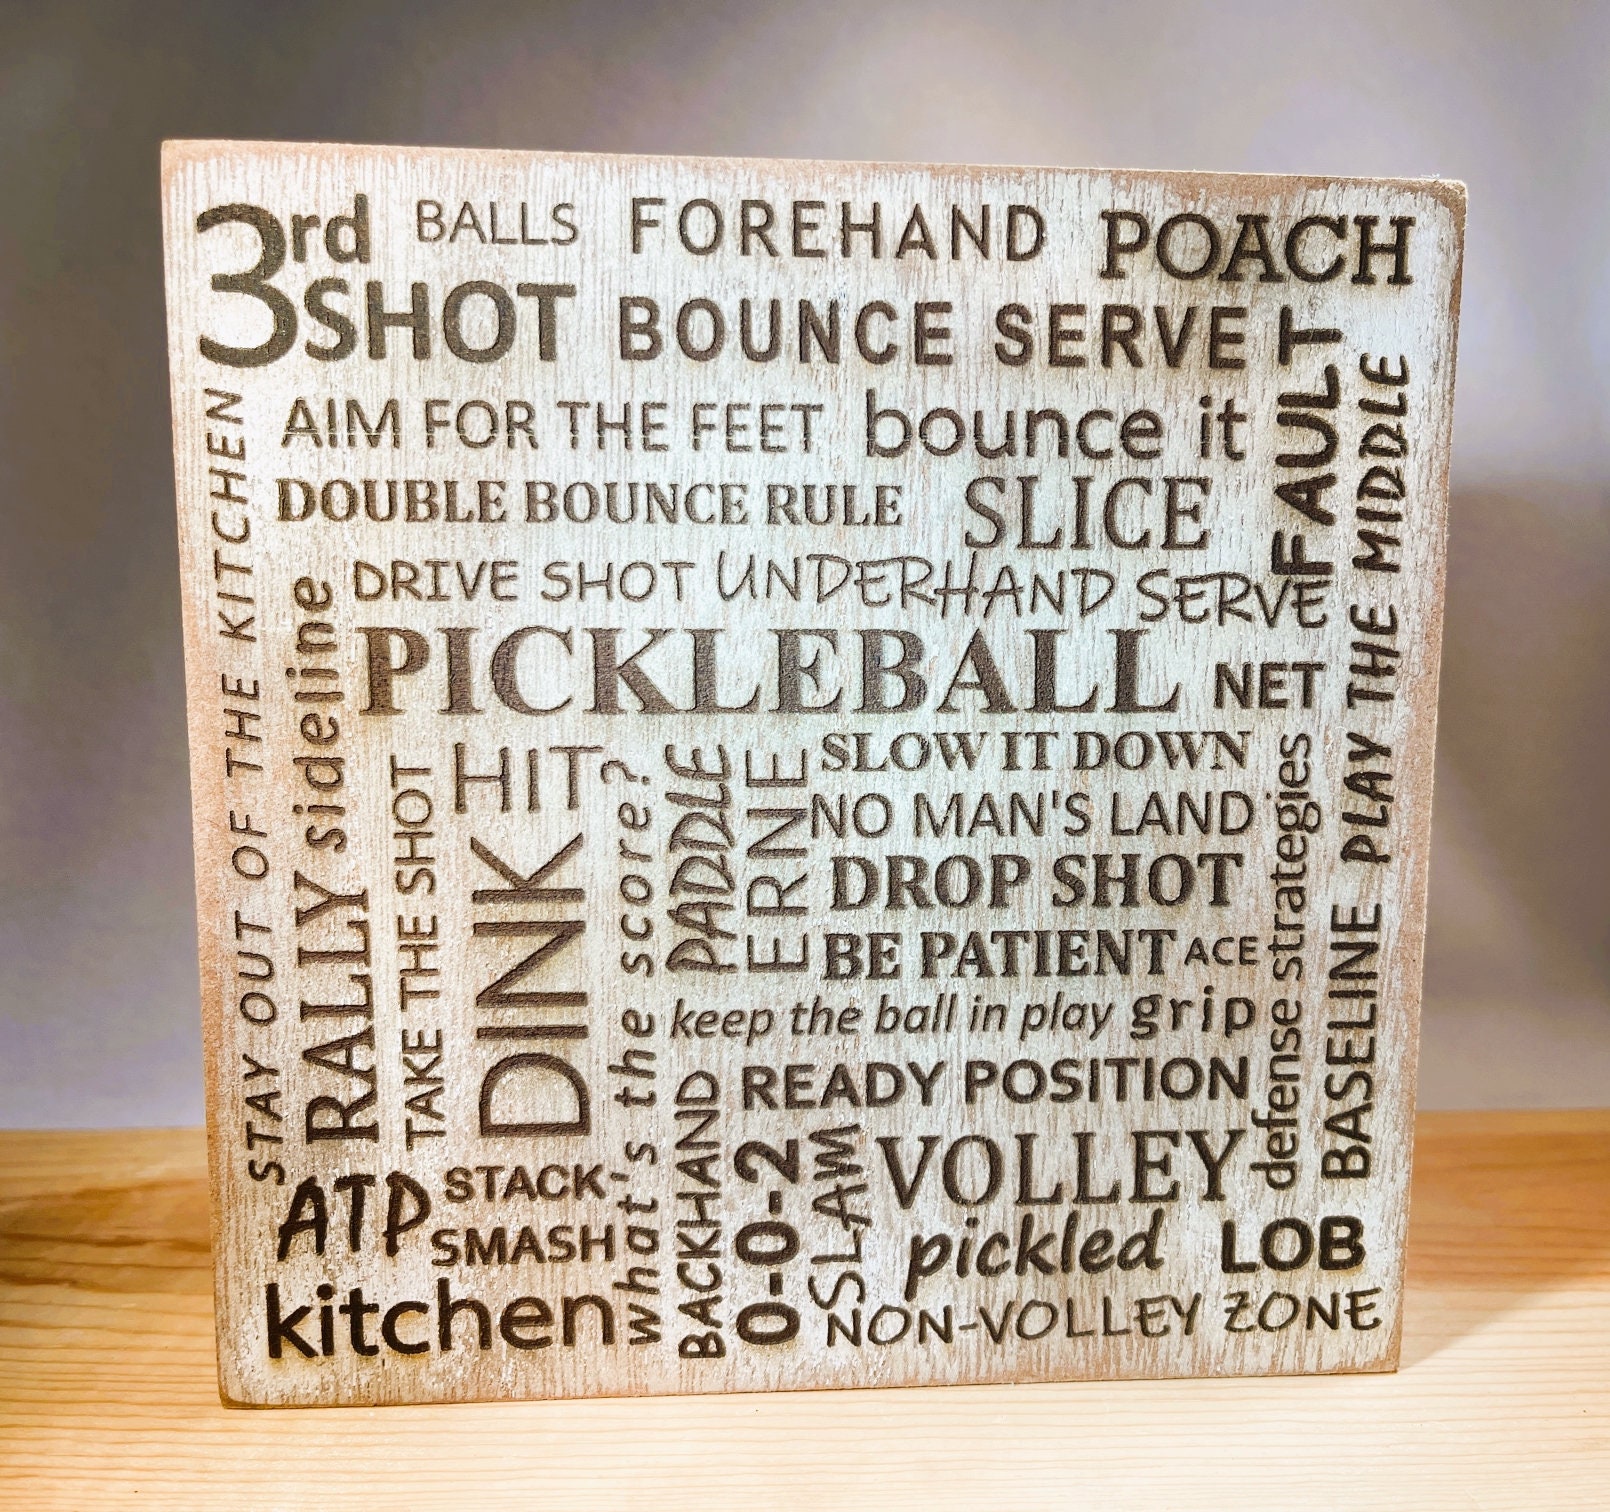 3rd SHOT
BALLS
FOREHAND
POACH
BOUNCE SERVE
FAULT
AIM FOR THE FEET
bounce it
DOUBLE BOUNCE RULE
SLICE
DRIVE SHOT
UNDERHAND SERVE
STAY OUT OF THE KITCHEN
sideline
PICKLEBALL
NET
PLAY THE MIDDLE
RALLY
TAKE THE SHOT
HIT
DINK
what's the score?
PADDLE
ERNE
SLOW IT DOWN
NO MAN'S LAND
DROP SHOT
BE PATIENT
ACE
defense strategies
BASELINE
keep the ball in play
grip
READY POSITION
BACKHAND
0-0-2
SLAM
VOLLEY
ATP
STACK
SMASH
pickled
LOB
kitchen
NON-VOLLEY ZONE